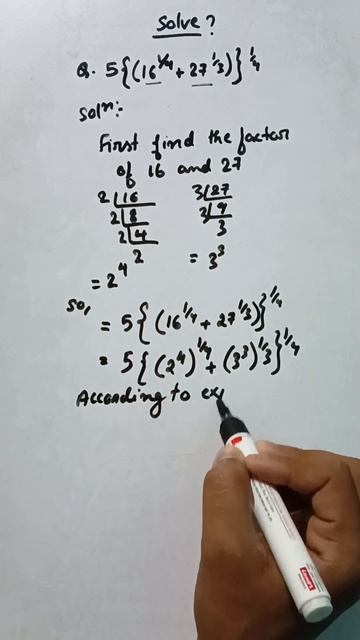 Solve ?
Q. 5{(16^1/4 + 27^1/3)}^1/4
Solⁿ:-
First find the factor
of 16 and 27
2 | 16
2 | 8
2 | 4
2
= 2^4
3 | 27
3 | 9
3
= 3^3
So,
= 5{(16^1/4 + 27^1/3)}^1/4
= 5{(2^4)^1/4 + (3^3)^1/3}^1/4
According to ex